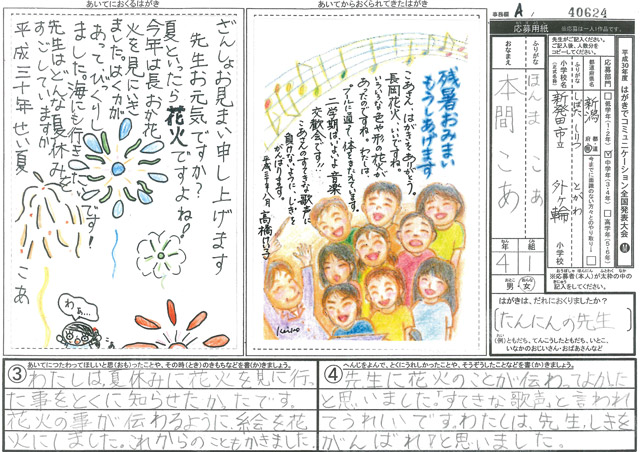 事務局 A 40624
応募用紙
※応募は一人1作品です。
先生がご記入ください。
ご記入後、人数分を
コピーしてください。
平成30年度 はがきでコミュニケーション全国発表大会
応募部門
低学年(1・2年)
中学年(3・4年)
高学年(5・6年)
都道府県名
新潟
小学校名
しばたしりつ とがわ
新発田市立 外ヶ輪 小学校
ふりがな ほんま こあ
おなまえ 本間 こあ
年 4
組 1
男・女
※応募者(本人)が太枠の中の
記入をしてください。
はがきは、だれにおくりましたか?
たんにんの先生
(例)ともだち、てんこうしたともだち、いとこ、
いなかのおじいさん・おばあさんなど
あいてからおくられてきたはがき
残暑おみまい
もうしあげます
こあさん、はがきをありがとう。
長岡花火、いいですね。
いろいろな色や形の花火が
あったのですね。わたしは、
プールに通って、体をきたえています。
二学期はいよいよ音楽
交歓会です!!
こあさんのすてきな歌声に
負けないように、しきを
がんばります。
平成三十年八月
あいてにおくるはがき
ざんしょお見まい申し上げます
先生お元気ですか?
夏といったら花火ですよね!
今年は長おか花
火を見にいき
ました。はくりょくが
あっ
ました。海にも行きました。
先生はどんな夏休みを
すごしていますか
平成三十年せい夏
こあ
わぁ…
③ あいてにつたわってほしいと思(おも)ったことや、その時(とき)のきもちなどを書(か)きましょう。
わたしは夏休みに花火を見に行っ
た事をとくに知らせたかったです。
花火の事が伝わるように、絵を花
火にしました。これからのこともかきました。
④ へんじをよんで、とくにうれしかったことや、そうぞうしたことなどを書(か)きましょう。
先生に花火のことが伝わってよかった
と思いました。「すてきな歌声」と言われ
てうれしいです。わたしは、先生、しきを
がんばれ!と思いました。